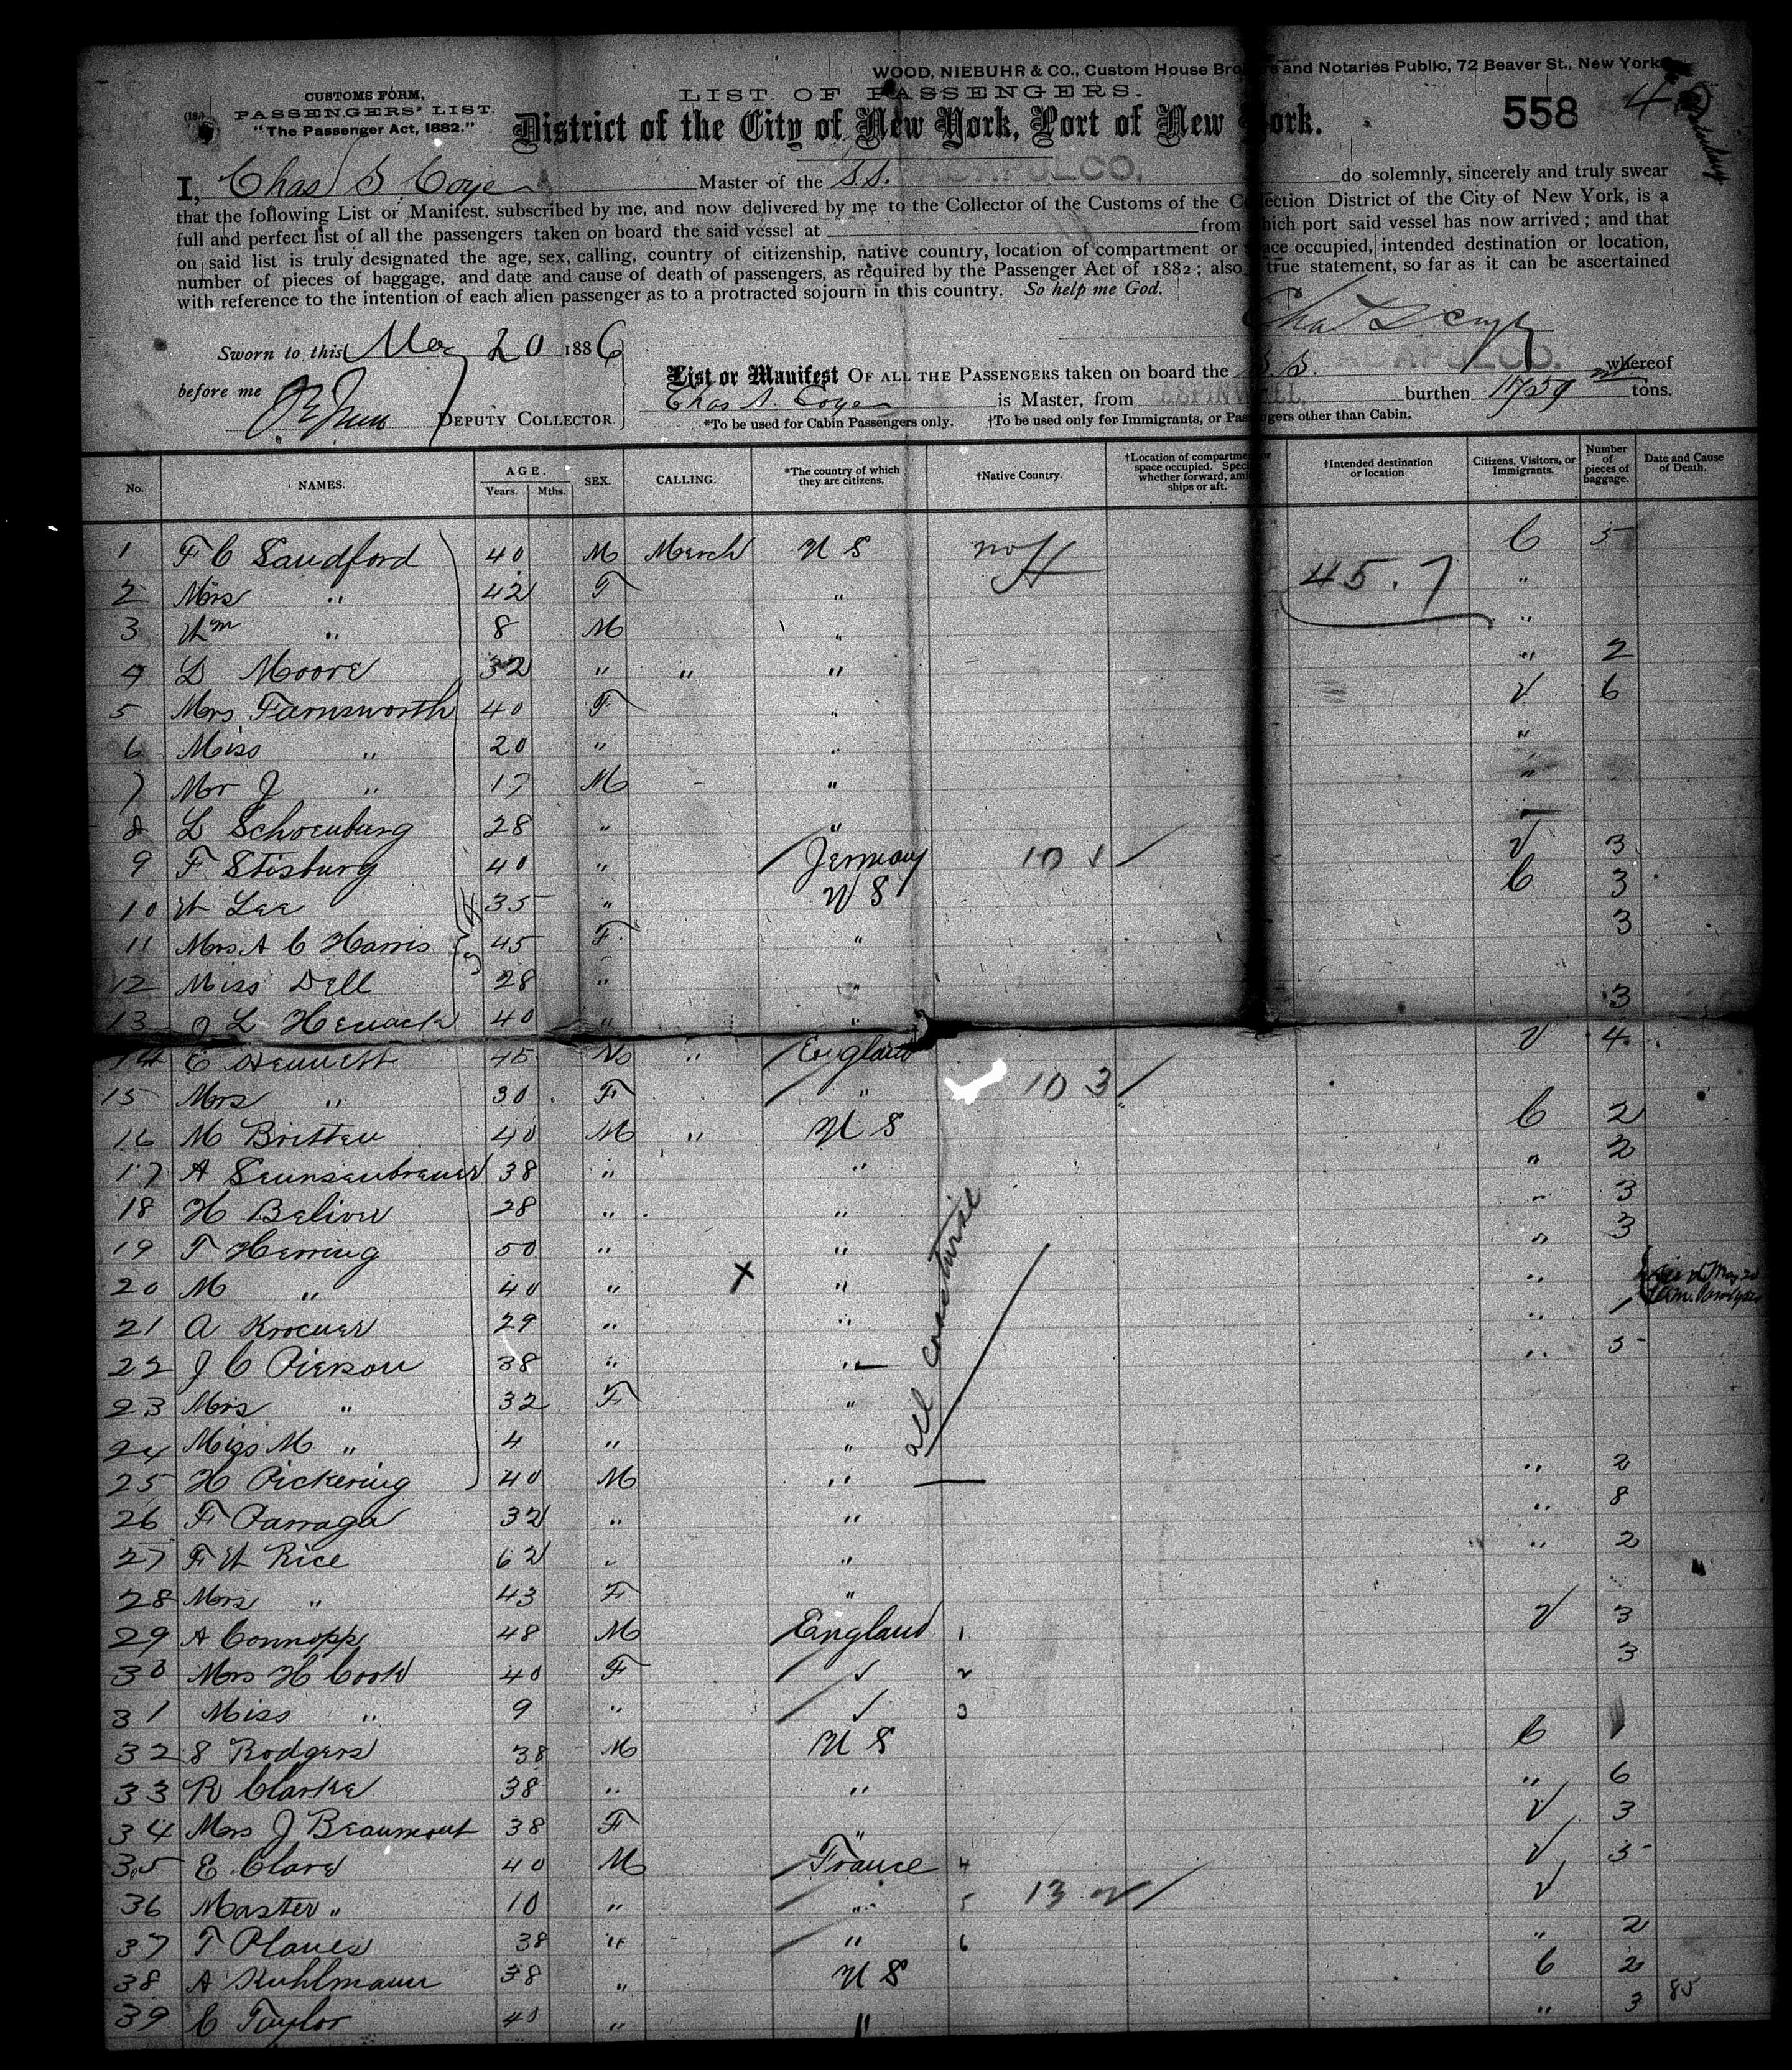 WOOD, NIEBUHR & CO., Custom House Brokers and Notaries Public, 72 Beaver St., New York
CUSTOMS FORM,
PASSENGERS' LIST.
"The Passenger Act, 1882."
LIST OF PASSENGERS.
District of the City of New York, Port of New York.
558 4
I, Chas S Coye Master of the S.S. ACAPULCO. do solemnly, sincerely and truly swear
that the following List or Manifest, subscribed by me, and now delivered by me to the Collector of the Customs of the Collection District of the City of New York, is a
full and perfect list of all the passengers taken on board the said vessel at from which port said vessel has now arrived; and that
on said list is truly designated the age, sex, calling, country of citizenship, native country, location of compartment or space occupied, intended destination or location,
number of pieces of baggage, and date and cause of death of passengers, as required by the Passenger Act of 1882; also true statement, so far as it can be ascertained
with reference to the intention of each alien passenger as to a protracted sojourn in this country. So help me God.
Sworn to this May 20 1886
before me
DEPUTY COLLECTOR
List or Manifest OF ALL THE PASSENGERS taken on board the S.S. ACAPULCO. whereof
Chas S. Coye is Master, from ASPINWALL, burthen tons.
*To be used for Cabin Passengers only. †To be used only for Immigrants, or Passengers other than Cabin.
No. NAMES. AGE. Years. Mths. SEX. CALLING. *The country of which they are citizens. †Native Country. †Location of compartment or space occupied. Specify whether forward, amidships or aft. †Intended destination or location Citizens, Visitors, or Immigrants. Number of pieces of baggage. Date and Cause of Death.
1 F C Sandford 40 M Merch U S C 5
2 Mrs " 42 F " 45.7 "
3 Wm " 8 M " "
4 D Moore 32 " " " " 2
5 Mrs Farnsworth 40 F " V 6
6 Miss " 20 " " "
7 Mr J " 17 M " "
8 L Schoenburg 28 " "
9 F Stisburg 40 " Germany 10 V 3
10 W Lee 35 " U S C 3
11 Mrs A C Harris 45 F " 3
12 Miss Dell 28 " "
13 J L Henack 40 " " 3
14 E Bennett 45 M " England V 4
15 Mrs " 30 F " 10 3
16 M Britten 40 M " U S C 2
17 A 38 " " " 2
18 H Beliver 28 " " " 3
19 T Herring 50 " " " 3
20 M " 40 " X " " Died May 20
21 A Kroener 29 " " " 1
22 J C Pierson 38 " " " 5
23 Mrs " 32 F "
24 Miss M " 4 " "
25 H Pickering 40 M " " 2
26 F Parraga 32 " " " 8
27 F W Rice 62 " " " 2
28 Mrs " 43 F "
29 A Connopp 48 M England 1 V 3
30 Mrs H Cook 40 F ✓ 2 3
31 Miss " 9 " ✓ 3
32 S Rodgers 38 M U S C 1
33 R Clarke 38 " " " 6
34 Mrs J Beaumont 38 F " V 3
35 E Clare 40 M France 4 V 5
36 Master " 10 " " 5 13 V
37 T Planes 38 " " 6 " 2
38 A Kuhlmann 38 " U S C 2
39 C Taylor 40 " " " 3 85